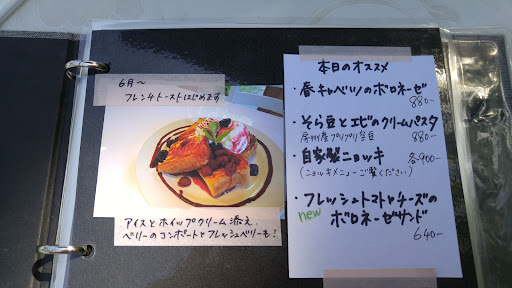 6月〜
フレンチトーストはじめます
アイスとホイップクリーム添え
ベリーのコンポートとフレッシュベリーも!
本日のオススメ
・春キャベツのボロネーゼ
880-
・そら豆とエビのクリームパスタ
房州産プリプリ空豆
880-
・自家製ニョッキ 各900-
(ニョッキメニューご覧ください)
・フレッシュトマトとチーズの
new ボロネーゼサンド
640-